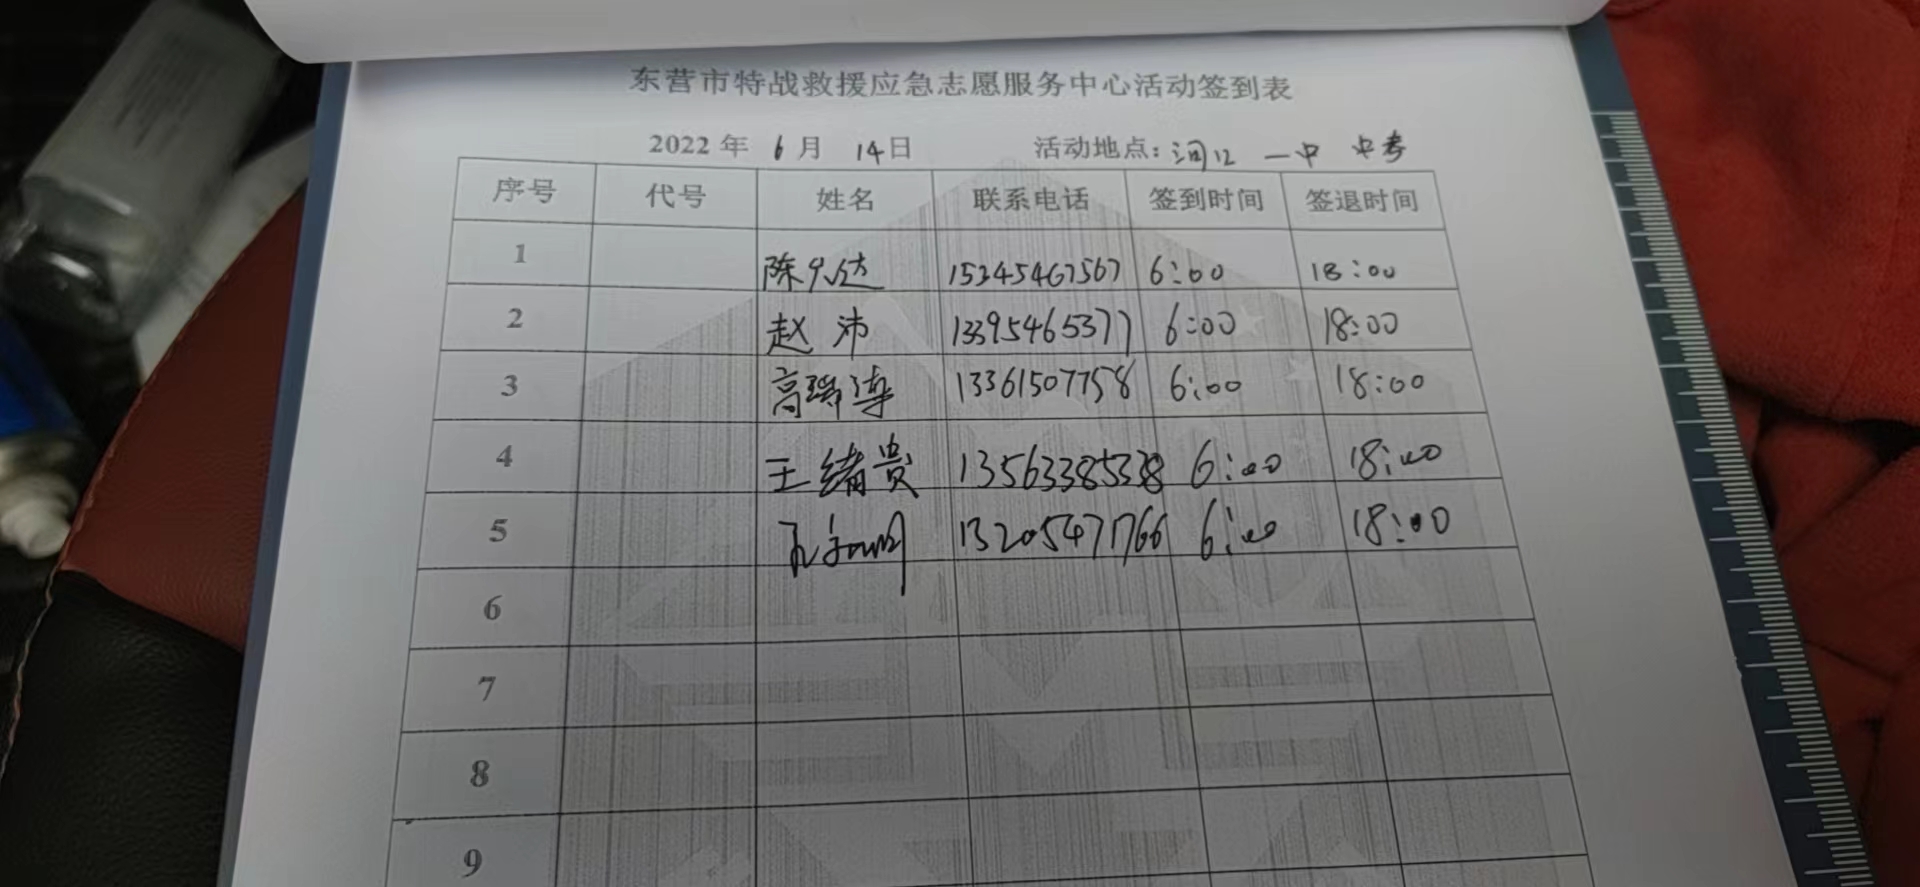 东营市特战救援应急志愿服务中心活动签到表
2022 年 6 月 14 日 活动地点: 河口 一中 中考
序号 代号 姓名 联系电话 签到时间 签退时间
1 陈 15345467567 6:00 18:00
2 赵沛 13395465377 6:00 18:00
3 高瑞涛 13361507758 6:00 18:00
4 王绪贵 13563385338 6:00 18:00
5 13205471766 6:00 18:00
6
7
8
9